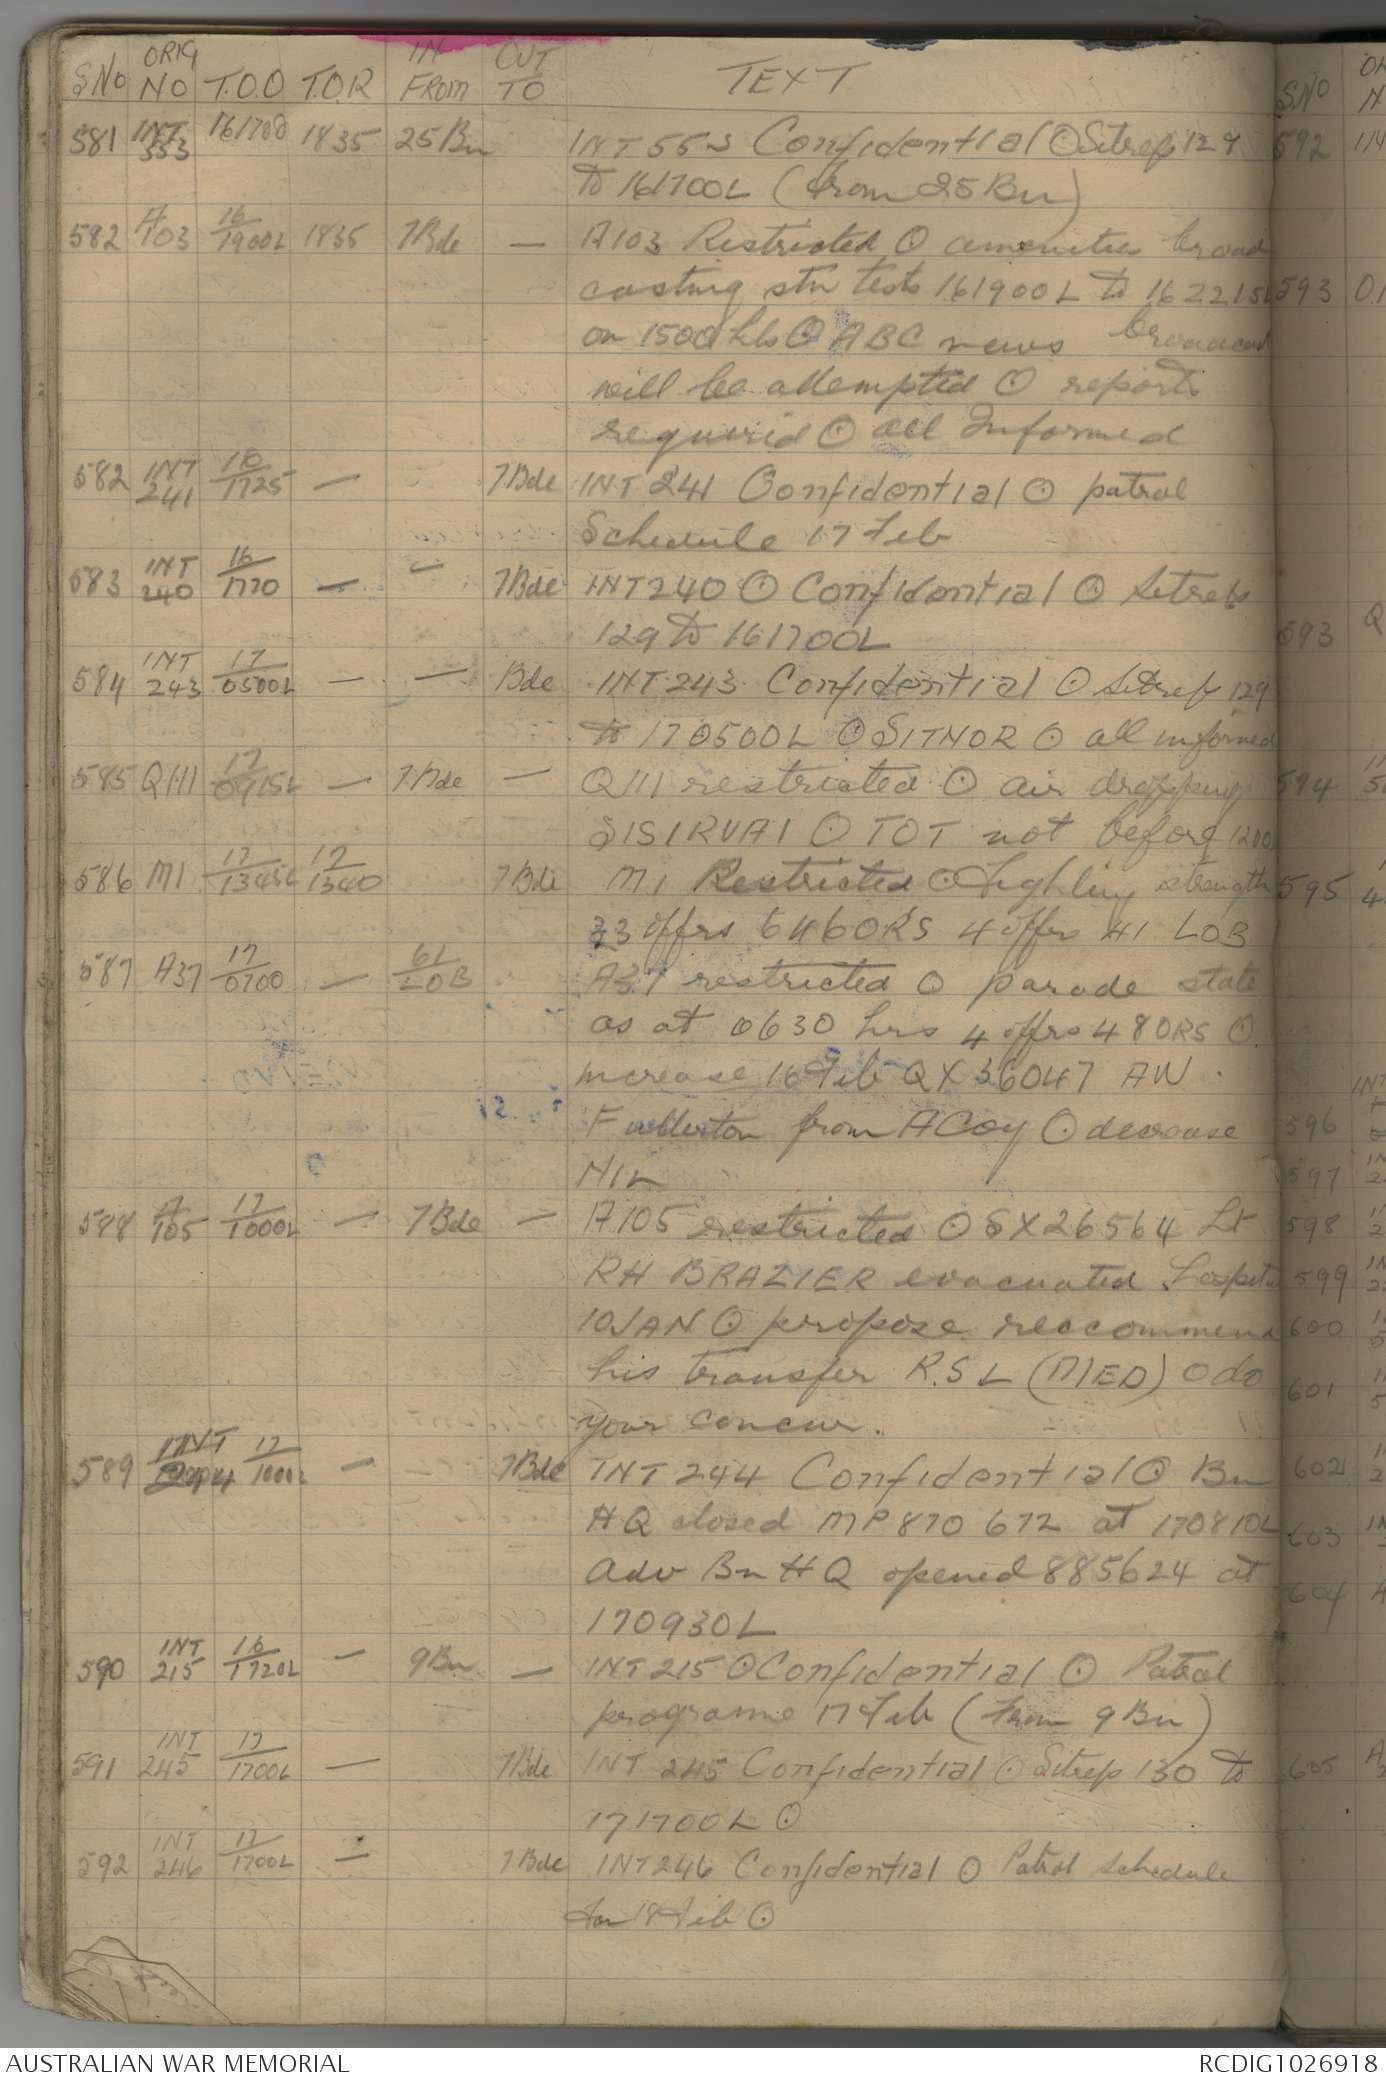 S.No ORIG NO T.O.O T.O.R IN FROM OUT TO TEXT
581 INT 553 161700 1835 25 Bn INT 553 Confidential ⊙ Sitrep 129
to 161700L (from 25 Bn)
582 A 103 16/1900L 1835 7Bde — A103 Restricted ⊙ amenities broad
casting stn tests 161900L to 162215L
on 1500 kls ⊙ ABC news broadcast
will be attempted ⊙ reports
requirid ⊙ all Informed
582 INT 241 16/1725 — 7Bde INT 241 Confidential ⊙ patrol
Schedule 17 Feb
583 INT 240 16/1770 — — 7Bde INT 240 ⊙ Confidential ⊙ Sitrep
129 to 161700L
584 INT 243 17/0500L — — Bde INT 243 Confidential ⊙ Sitrep 129
to 170500L ⊙ SITNOR ⊙ all informed
585 Q111 17/0915L — 7Bde — Q111 restricted ⊙ air dropping
SISIRUAI ⊙ TOT not before 1200
586 M1 17/1345L 17/1340 7Bde M1 Restricted ⊙ Fighting strength
33 offrs 646 ORS 4 offrs 41 LOB
587 A37 17/0700 — 61/LOB A37 restricted ⊙ parade state
as at 0630 hrs 4 offrs 48 ORS ⊙
increase 16 Feb QX36047 AW
Fullerton from A Coy ⊙ decrease
NIL
588 A 105 17/1000L — 7Bde — A105 restricted ⊙ SX26564 Lt
RH BRAZIER evacuated hospital
10 JAN ⊙ propose reccommend
his transfer R.S.L (MED) ⊙ do
your concur.
589 INT 244 17/1000L — 7Bde INT 244 Confidential ⊙ Bn
HQ closed MP 870 672 at 170810L
Adv Bn HQ opened 885624 at
170930L
590 INT 215 16/1720L — 9Bn — INT 215 ⊙ Confidential ⊙ Patrol
programe 17 Feb (From 9 Bn)
591 INT 245 17/1700L — 7Bde INT 245 Confidential ⊙ Sitrep 130 to
171700L ⊙
592 INT 246 17/1700L — 7Bde INT 246 Confidential ⊙ Patrol schedule
for 18 Feb ⊙
S.NO
592
593
593
594
595
596
597
598
599
600
601
602
603
604
605
AUSTRALIAN WAR MEMORIAL
RCDIG1026918